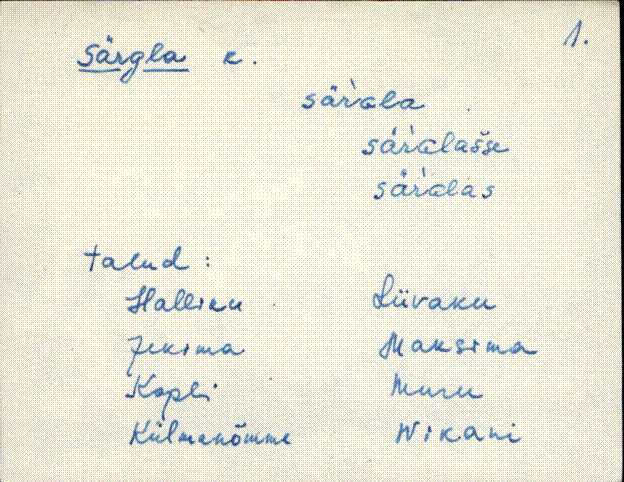 1.
Särgla k.
sär`Gla
sär`Glašse
sär`Glas
talud:
Halliku Liivaku
Jekima Maksima
Kopli Muru
Külmanõmme Nikani